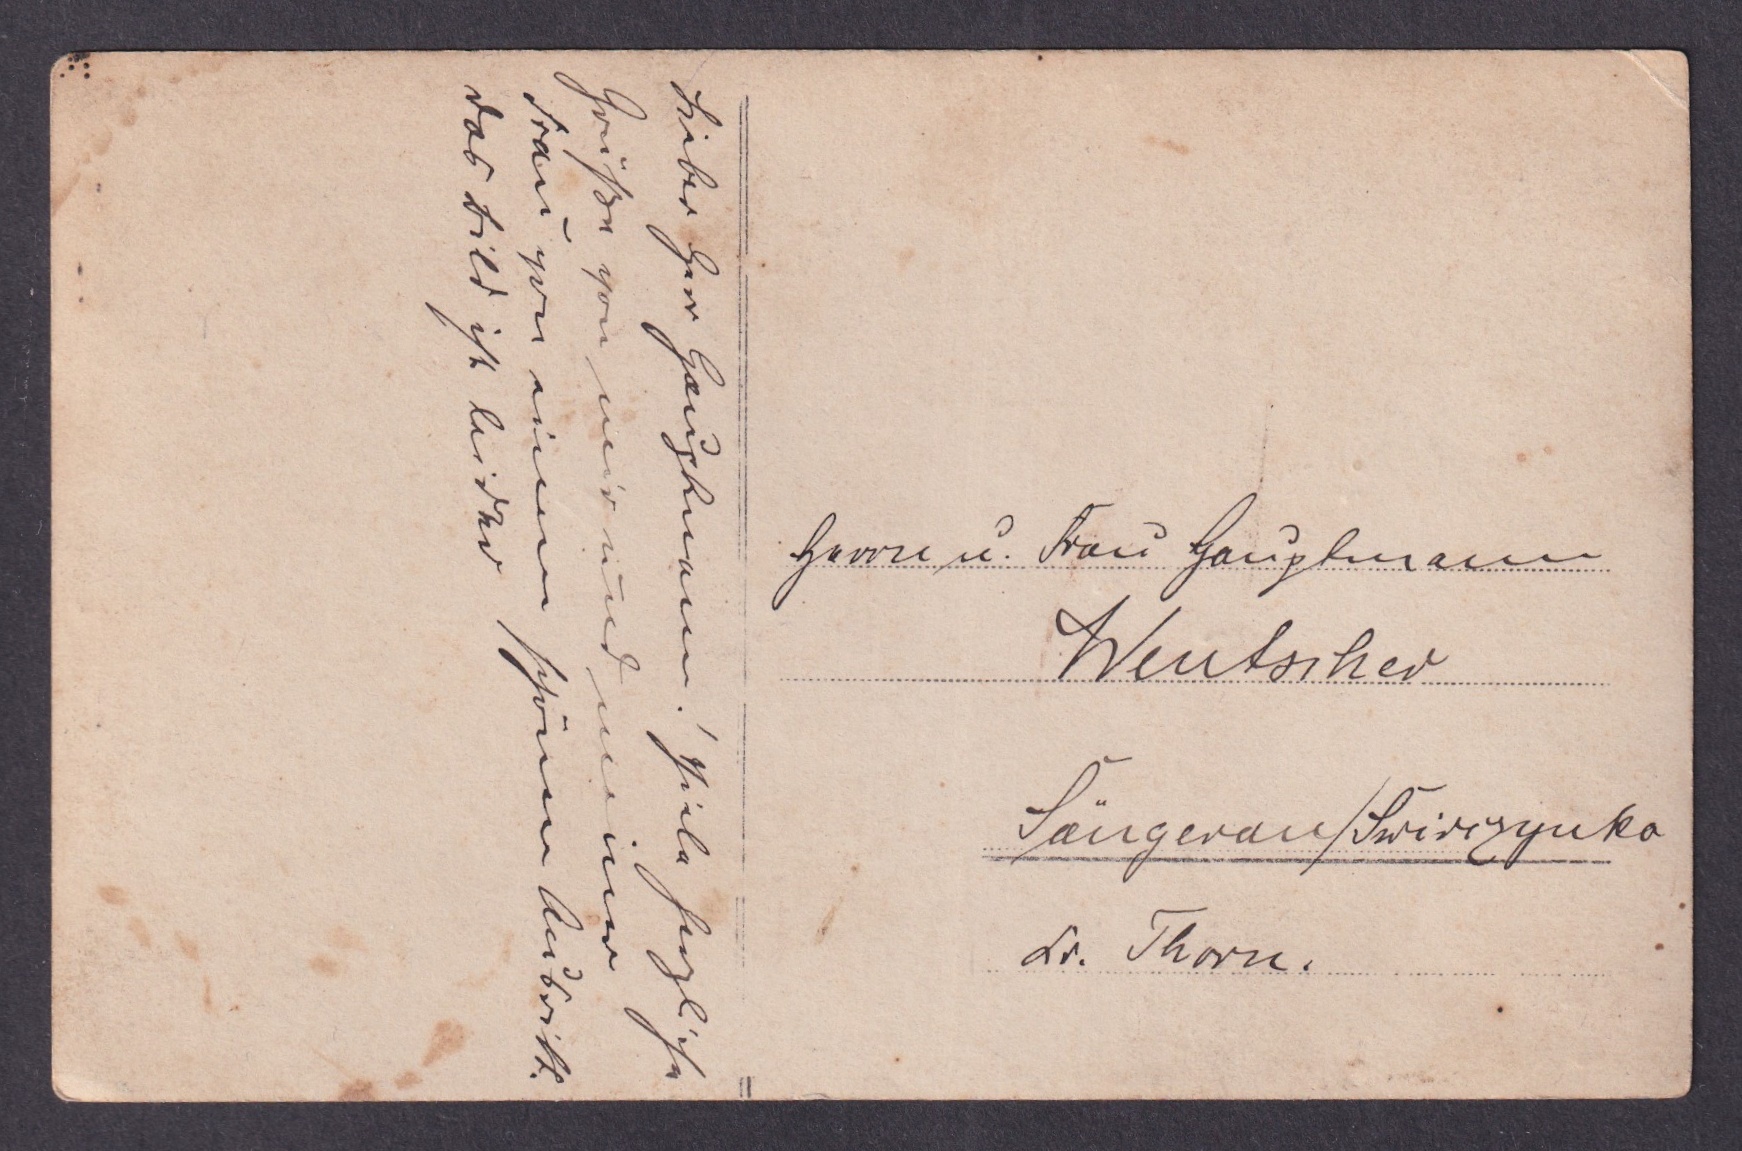 Lieber Herr Hauptmann! Viele herzliche
Grüße von mir und meiner
Frau von einem schönen Ausritt.
Das Bild ist leider
Herrn u. Frau Hauptmann
Wentscher
Sängerau/Swirczynko
Kr. Thorn.